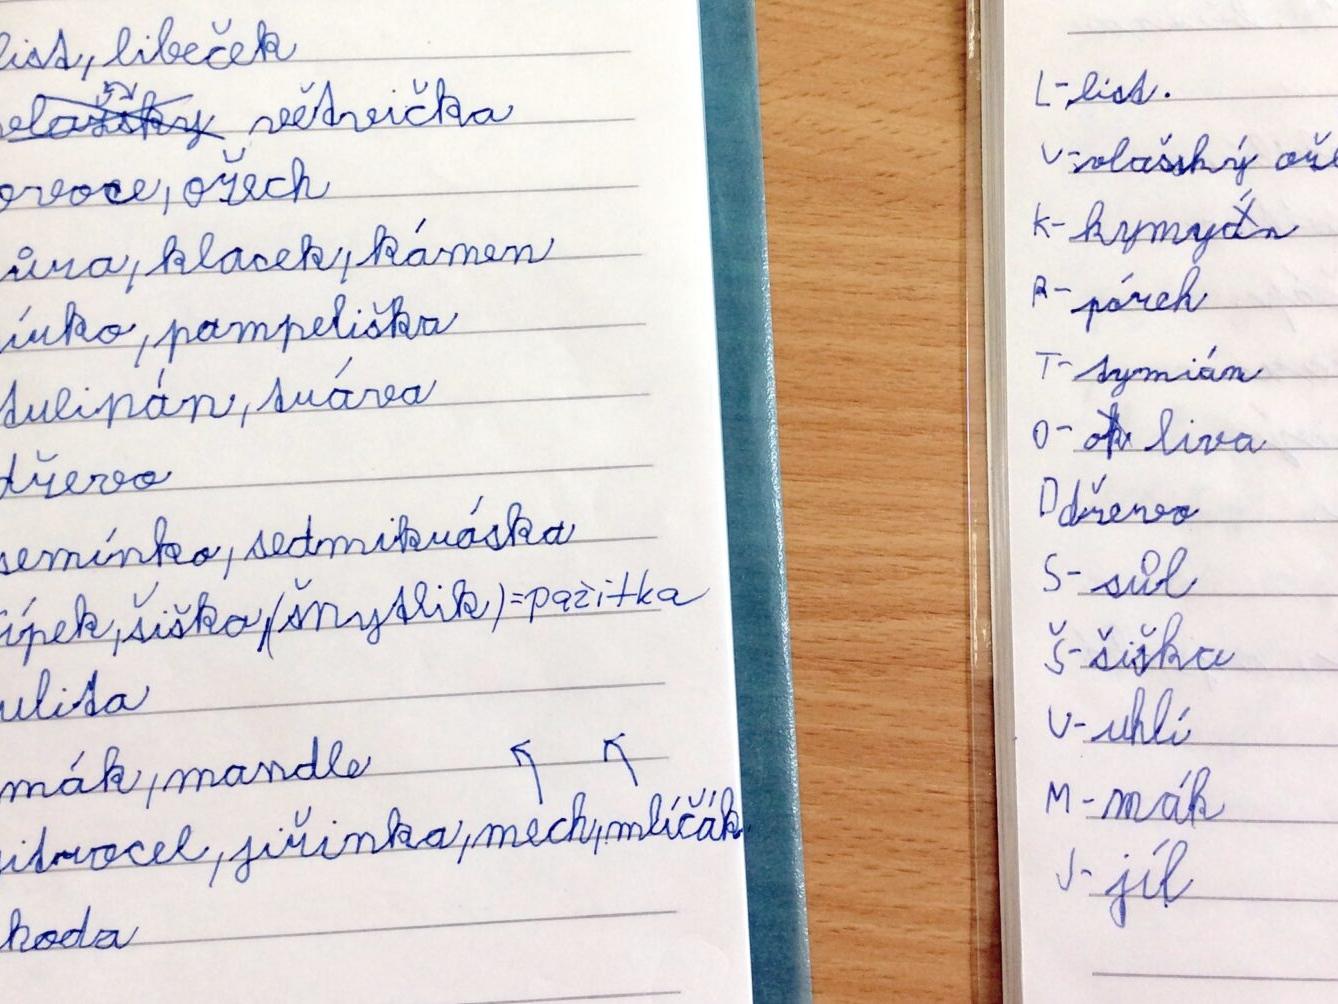 list, libeček
větvička
ovoce, ořech
kůra, klacek, kámen
pírko, pampeliška
tulipán, tráva
dřevo
semínko, sedmikráska
šípek, šiška, (šnytlik) = pažitka
ulita
mák, mandle
jitrocel, jiřinka, mech, mlíčák
L - list.
V - vlašský oře
K - kymyán
R - pórek
T - tymián
O - oliva
D dřevo
S - sůl
Š - šiška
U - uhlí
M - mák
J - jíl